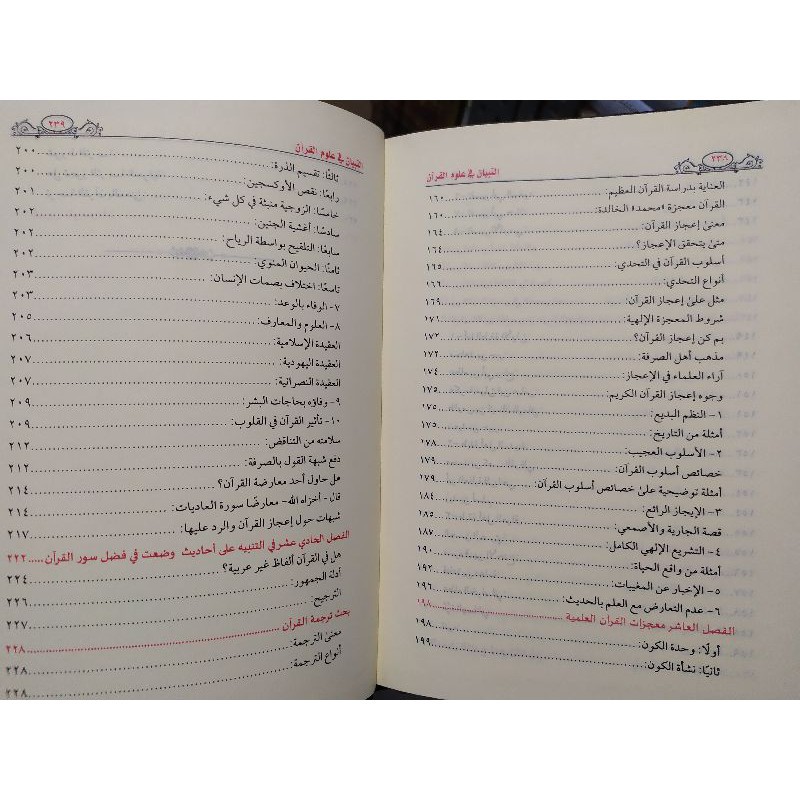 ٢٣٨ التبيان في علوم القرآن
العناية بدراسة القرآن العظيم: ١٦٠
القرآن معجزة «محمد» الخالدة: ١٦٠
معنى إعجاز القرآن: ١٦٤
متى يتحقق الإعجاز؟ ١٦٤
أسلوب القرآن في التحدي: ١٦٥
أنواع التحدي: ١٦٦
مثل على إعجاز القرآن: ١٦٩
شروط المعجزة الإلهية: ١٧١
بم كن إعجاز القرآن؟ ١٧٢
مذهب أهل الصرفة: ١٧٢
آراء العلماء في الإعجاز: ١٧٤
وجوه إعجاز القرآن الكريم: ١٧٥
١- النظم البديع: ١٧٥
أمثلة من التاريخ: ١٧٥
٢- الأسلوب العجيب: ١٧٨
خصائص أسلوب القرآن: ١٧٩
أمثلة توضيحية على خصائص أسلوب القرآن: ١٧٩
٣- الإيجاز الرائع: ١٨٤
قصة الجارية والأصمعي: ١٨٥
٤- التشريع الإلهي الكامل: ١٨٧
أمثلة من واقع الحياة: ١٩٠
٥- الإخبار عن المغيبات: ١٩٢
٦- عدم التعارض مع العلم بالحديث: ١٩٦
الفصل العاشر معجزات القرآن العلمية ١٩٨
أولًا: وحدة الكون: ١٩٨
ثانيًا: نشأة الكون: ١٩٩
التبيان في علوم القرآن ٢٣٩
ثالثًا: تقسيم الذرة: ٢٠٠
رابعًا: نقص الأوكسجين: ٢٠٠
خامسًا: الزوجية منبثة في كل شيء: ٢٠١
سادسًا: أغشية الجنين: ٢٠٢
سابعًا: التلقيح بواسطة الرياح: ٢٠٢
ثامنًا: الحيوان المنوي: ٢٠٢
تاسعًا: اختلاف بصمات الإنسان: ٢٠٣
٧- الوفاء بالوعد: ٢٠٣
٨- العلوم والمعارف: ٢٠٥
العقيدة الإسلامية: ٢٠٦
العقيدة اليهودية: ٢٠٧
العقيدة النصرانية: ٢٠٧
٩- وفاؤه بحاجات البشر: ٢٠٩
١٠- تأثير القرآن في القلوب: ٢٠٩
سلامته من التناقض: ٢١٢
دفع شبهة القول بالصرفة: ٢١٢
هل حاول أحد معارضة القرآن؟ ٢١٤
قال - أخزاه الله- معارضًا سورة العاديات: ٢١٤
شبهات حول إعجاز القرآن والرد عليها: ٢١٧
الفصل الحادي عشر في التنبيه على أحاديث وضعت في فضل سور القرآن ٢٢٢
هل في القرآن ألفاظ غير عربية؟ ٢٢٤
أدلة الجمهور:
الترجيح: ٢٢٦
بحث ترجمة القرآن ٢٢٧
معنى الترجمة: ٢٢٨
أنواع الترجمة: ٢٢٨